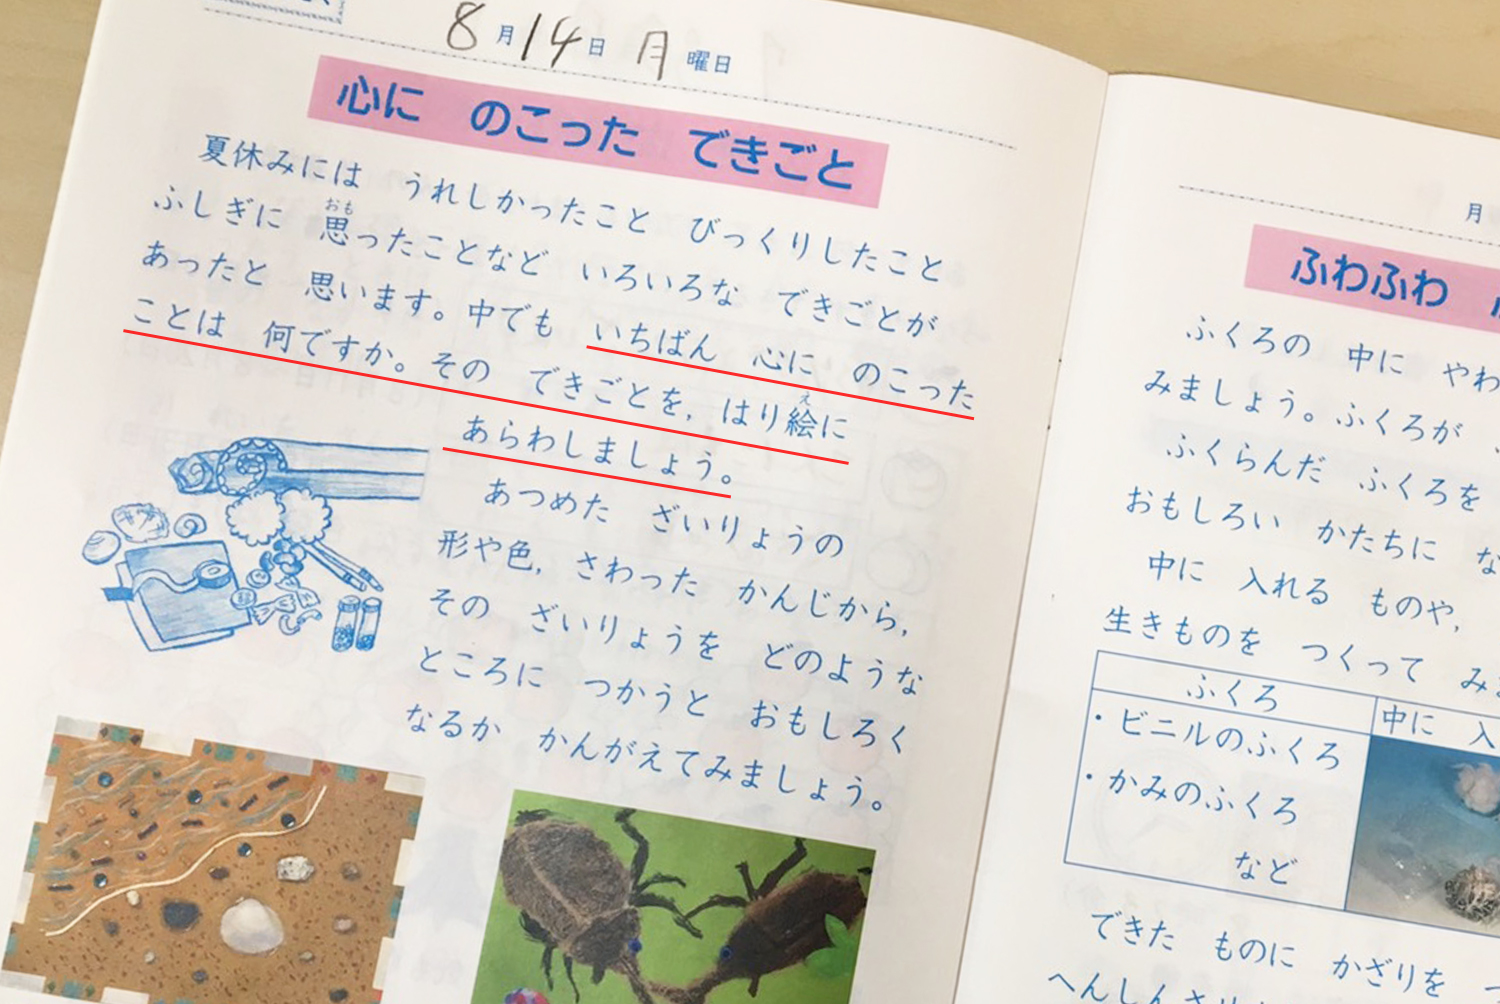 8月14日 月曜日
心に のこった できごと
夏休みには うれしかったこと びっくりしたこと
ふしぎに 思ったことなど いろいろな できごとが
おも
あったと 思います。中でも いちばん 心に のこった
ことは 何ですか。その できごとを，はり絵に
え
あらわしましょう。
あつめた ざいりょうの
形や色，さわった かんじから，
その ざいりょうを どのような
ところに つかうと おもしろく
なるか かんがえてみましょう。
月
ふわふわ
ふくろの 中に やわ
みましょう。ふくろが
ふくらんだ ふくろを
おもしろい かたちに な
中に 入れる ものや，
生きものを つくって み
ふくろ
中に 入
・ビニルのふくろ
・かみのふくろ
など
できた ものに かざりを
へんしん